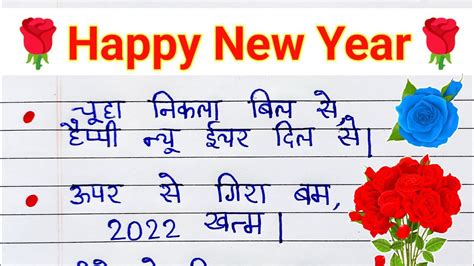 Happy New Year
चूहा निकला बिल से,
हैप्पी न्यू ईयर दिल से।
ऊपर से गिरा बम,
2022 खत्म।